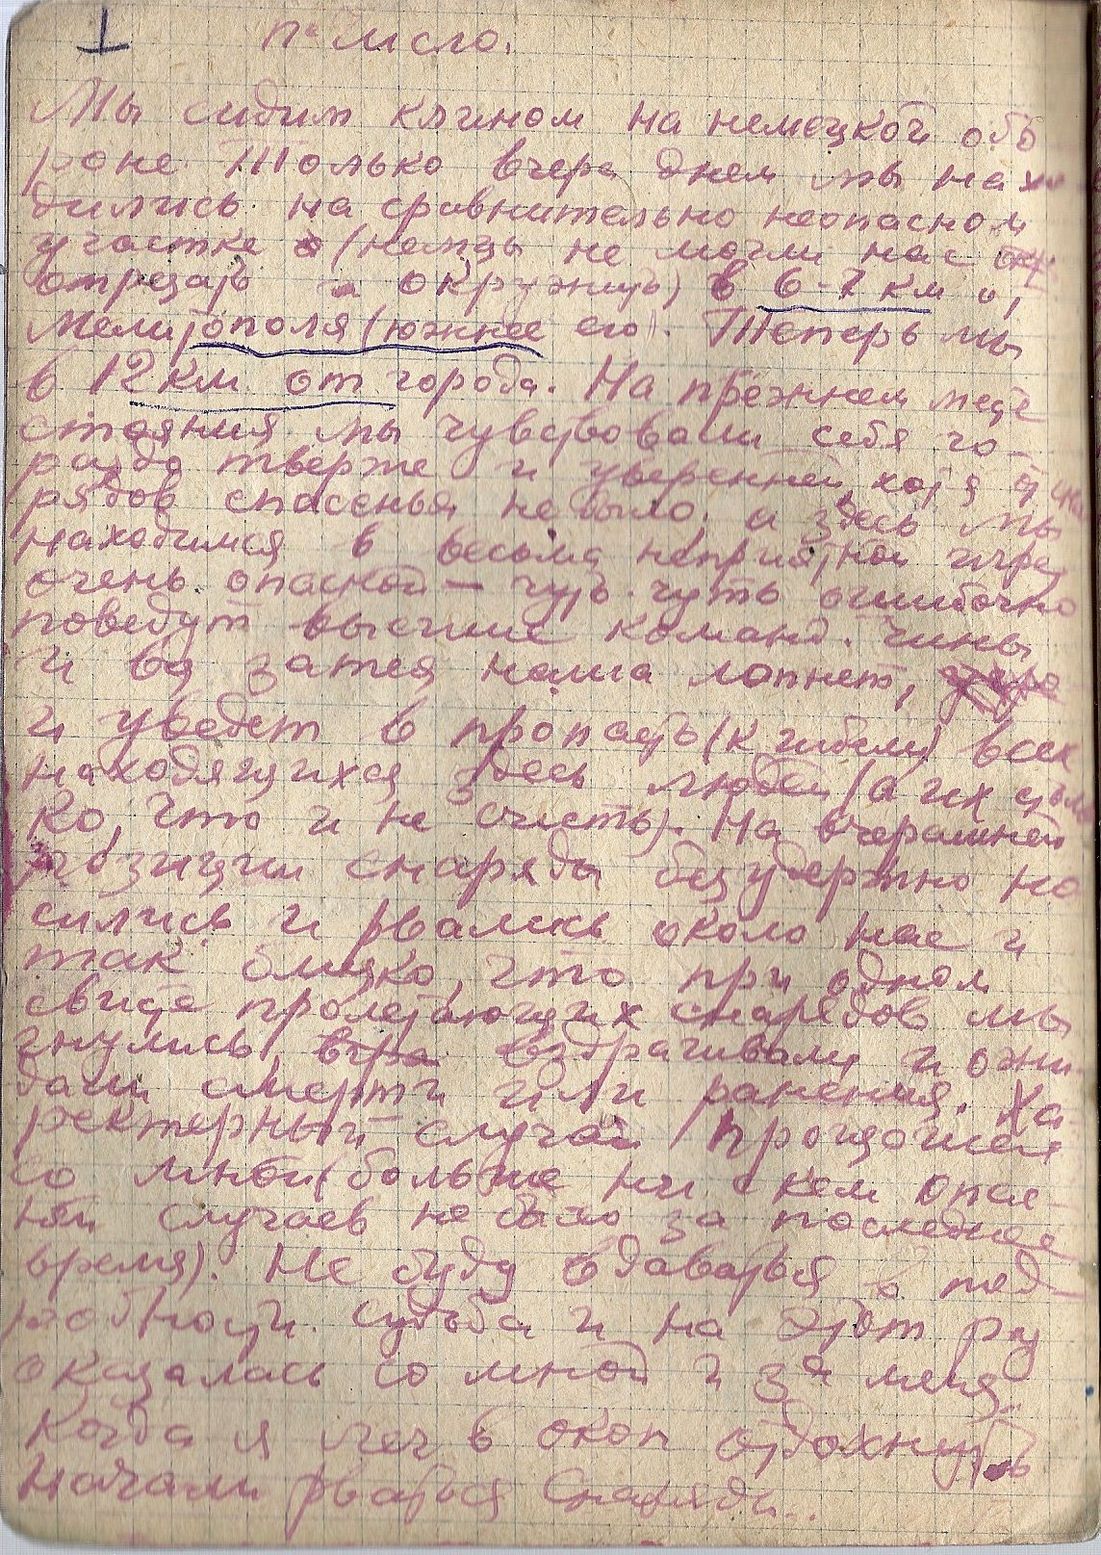 1 число.
Мы сидим клином на немецкой обо
роне. Только вчера днем мы нахо
дились на сравнительно неопасном
участке (немцы не могли нас
отрезать и окружить) в 6-7 км от
Мелитополя (южнее его). Теперь мы
в 12 км от города. На прежнем месте
стояния мы чувствовали себя го-
раздо тверже и уверенней, хотя от сна
рядов спасенья не было, а здесь мы
находимся в весьма неприятной игре,
очень опасной — чуть-чуть ошибочно
поведут высшие команд. чины
и вся затея наша лопнет,
и уведет в пропасть (к гибели) всех
находящихся здесь людей (а их столь
ко, что и не счесть). На вчерашней
позиции снаряды безудержно но
сились и рвались около нас и
так близко, что при одном
свисте пролетающих снарядов мы
гнулись, вздрагивали и ожи-
дали смерти или ранения. Ха-
рактерный случай произошел
со мной (больше ни с кем
случаев не было за последнее
время). Не буду вдаваться в под-
робности. Судьба и на этот раз
оказалась со мной и за меня.
Когда я лег в окоп отдохнуть
начали рваться снаряды..